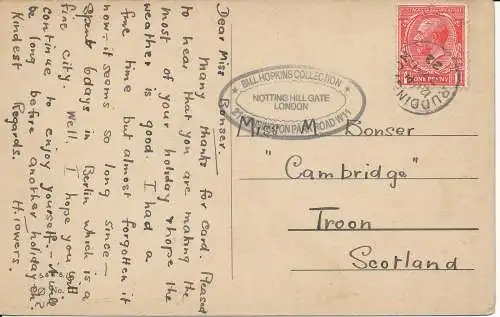 Dear Miss Bonser.
Many thanks for card. Pleased
to hear that you are making the
most of your holiday & hope the
weather is good. I had a
fine time but almost forgotten it
now, it seems so long since —
spent 6 days in Berlin which is a
fine city. Well. I hope you will
continue to enjoy yourself. —
be long before another holiday eh.
Kindest Regards. H. Towers.
BILL HOPKINS COLLECTION
NOTTING HILL GATE
LONDON
PARK ROAD W11
ONE PENNY
Miss M Bonser
"Cambridge"
Troon
Scotland